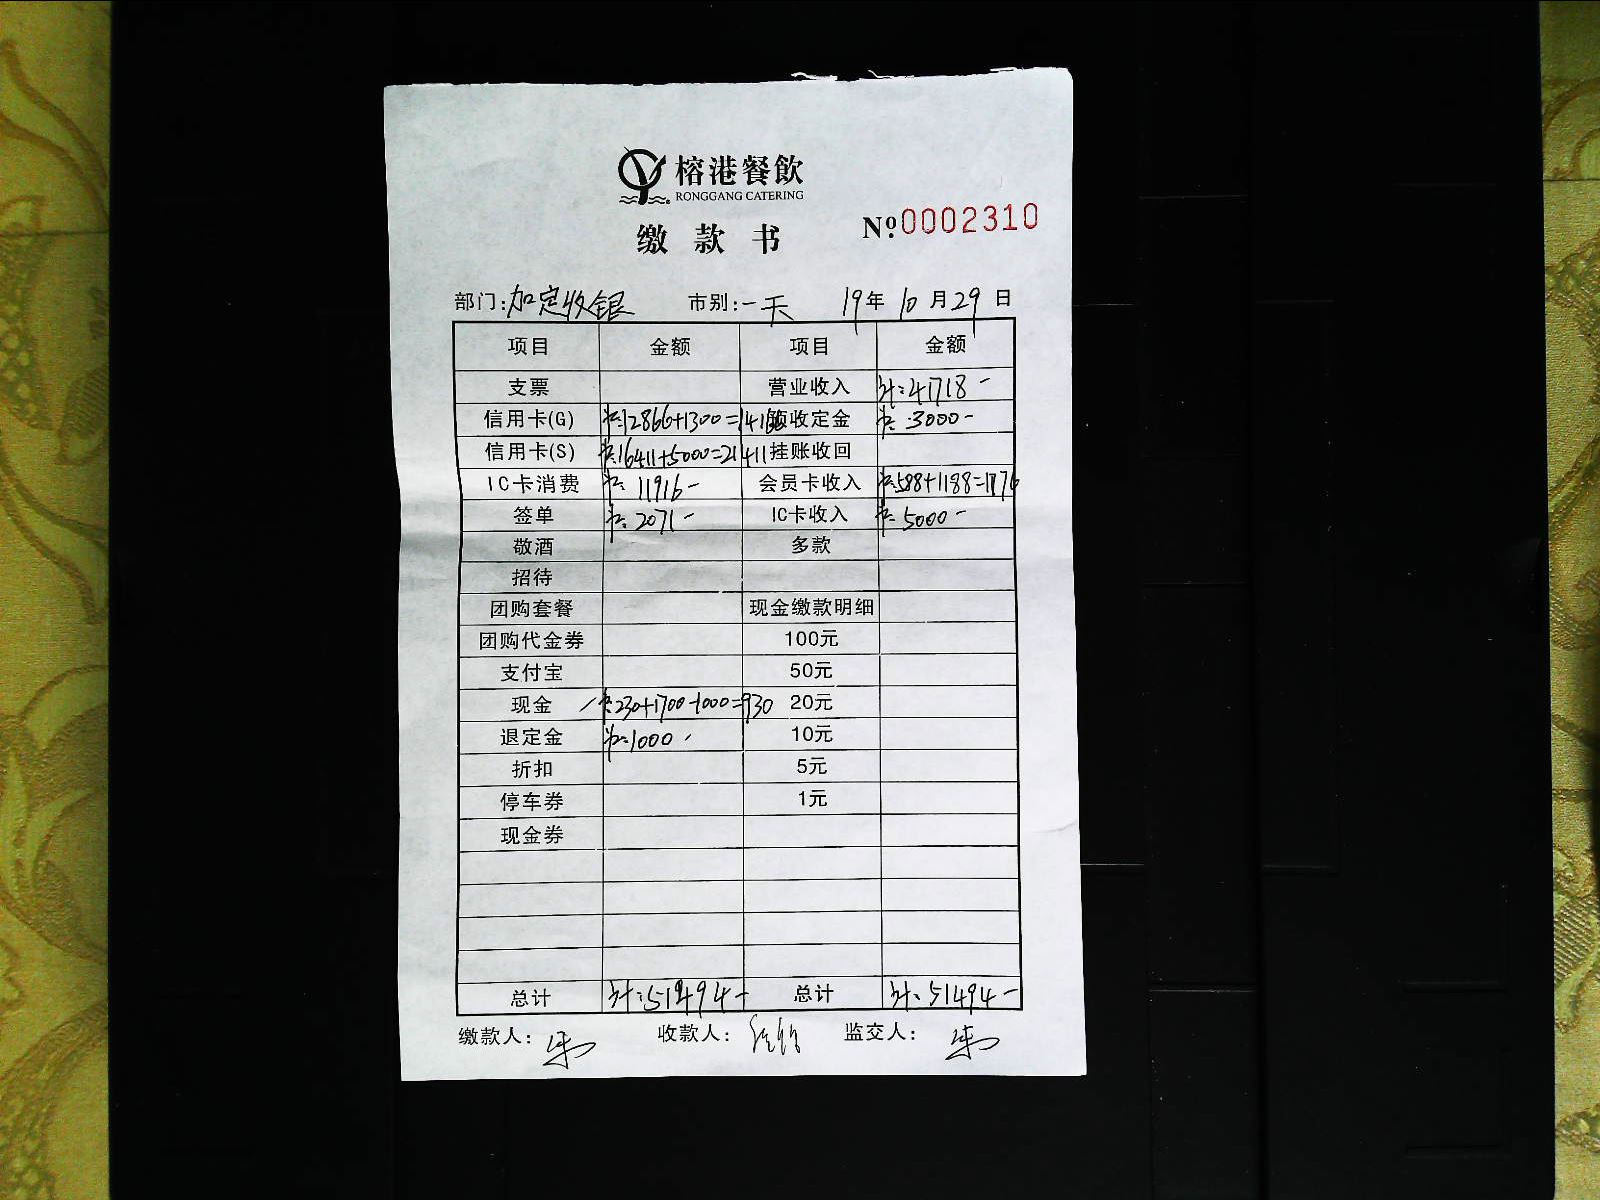 榕港餐飲
RONGGANG CATERING
缴款书
Nº 0002310
部门:加定收银 市别:一天 19年10月29日
项目 金额 项目 金额
支票 营业收入 计:41718-
信用卡(G) 12866+1300=14166 预收定金 3000-
信用卡(S) 16411+5000=21411 挂账收回
IC卡消费 11916- 会员卡收入 588+1188=1776
签单 2071- IC卡收入 5000-
敬酒 多款
招待
团购套餐 现金缴款明细
团购代金券 100元
支付宝 50元
现金 230+1700-1000=930 20元
退定金 1000- 10元
折扣 5元
停车券 1元
现金券
总计 计:51494- 总计 计:51494-
缴款人: 收款人: 监交人: